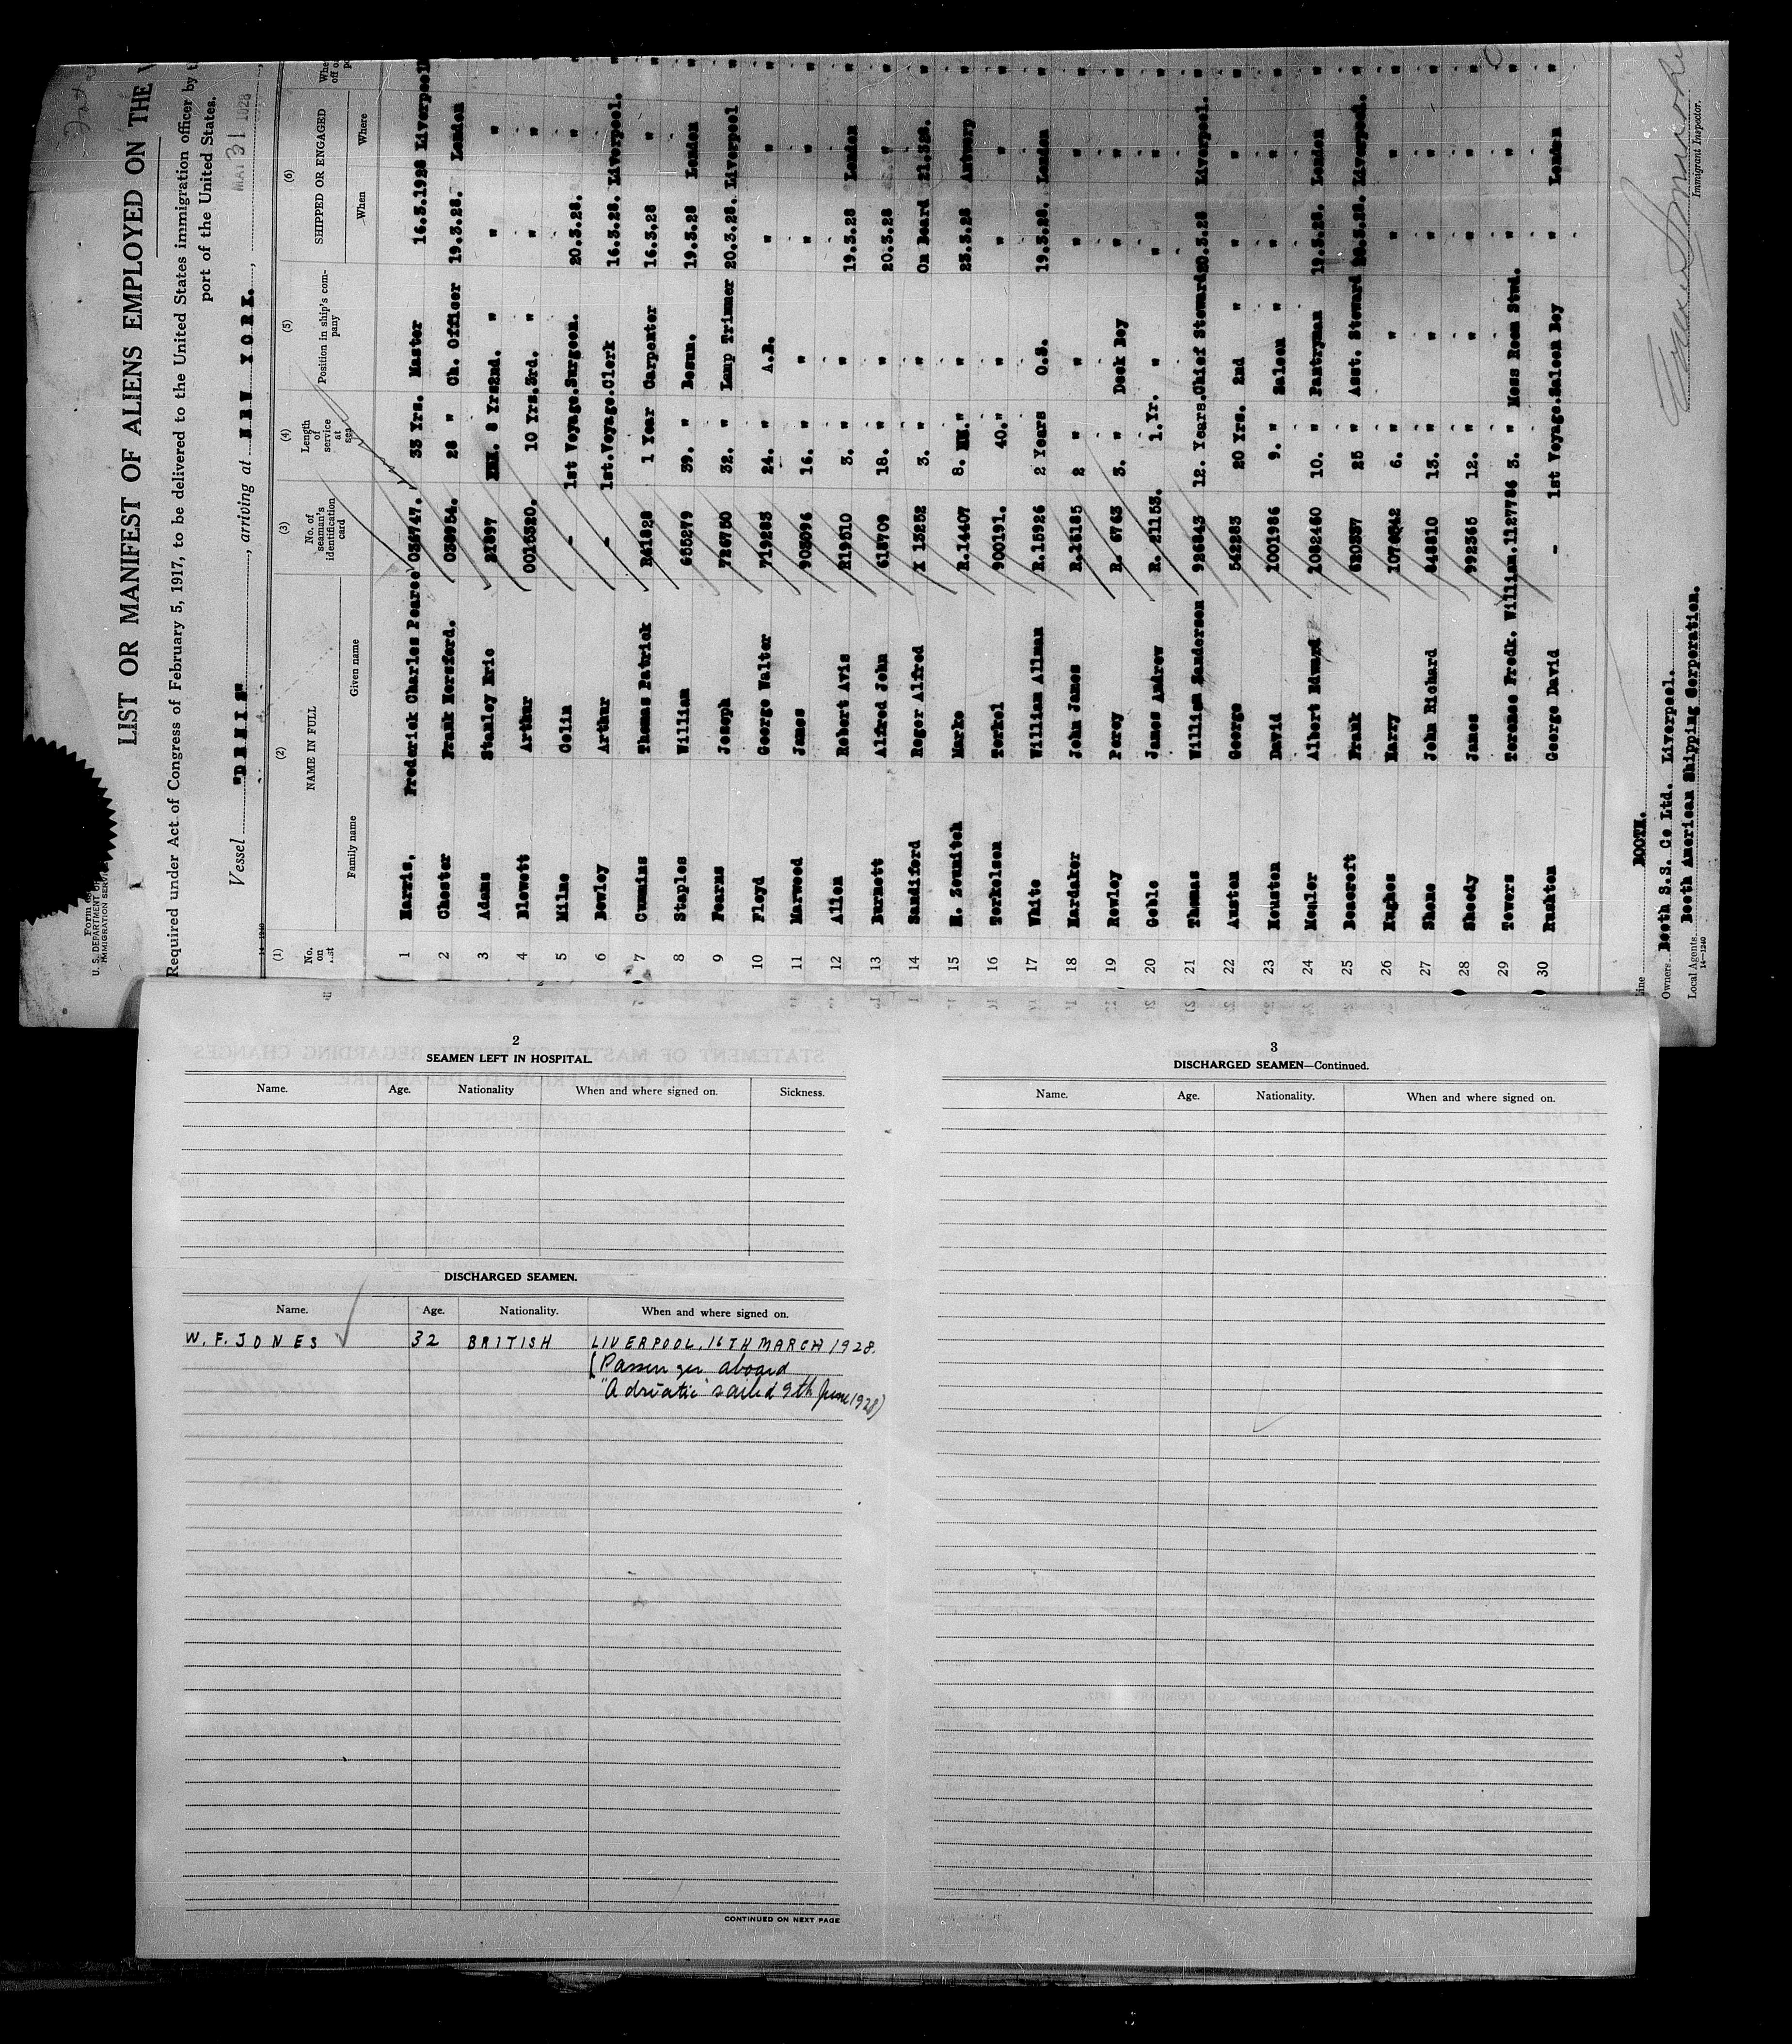 LIST OR MANIFEST OF ALIENS EMPLOYED ON THE
Required under Act of Congress of February 5, 1917, to be delivered to the United States immigration officer by
port of the United States.
Vessel "DENIS", arriving at NEW YORK. MAY 31 1928
(1) (2) (3) (4) (5) (6)
No. on list NAME IN FULL No. of seaman's identification card Length of service at sea Position in ship's company SHIPPED OR ENGAGED
Family name Given name When Where
1 Harris, Frederick Charles Pearce 33 Yrs. Master 16.3.1928 Liverpool
2 Chester Frank Horsford. 28 " Ch. Officer 19.3.28. London
3 Adams Stanley Eric 21897 8 Yrs 2nd. " " "
4 Blewett Arthur 0015320. 10 Yrs. 3rd. " " "
5 Milne Colin - 1st Voyage. Surgeon. 20.3.28. "
6 Bewley Arthur - 1st. Voyage. Clerk 16.3.28. Liverpool.
7 Cummins Thomas Patrick 1 Year Carpenter 16.3.28 "
8 Staples William 655279 39. " Bosun. 19.3.28 London
9 Fearns Joseph 726750 32. " Lamp Trimmer 20.3.28. Liverpool
10 Floyd George Walter 719283 24. " A.B. " "
11 Marwood James 903096 16. " " " "
12 Allen Robert Avis 3. " " 19.3.28 London
13 Burnett Alfred John 618709 18. " " 20.3.28 "
14 Sandiford Roger Alfred 3. " " On Board 21.3.28.
15 Marke R.14407 8. " " 23.3.28 Antwerp
16 Torkelsen Torkel 900191. 40. " " " "
17 White William Allman R.15926 2 Years O.S. 19.3.28. London
18 Hardaker John James R.16185 2 " " " "
19 Rowley Percy R. 6763 3. " Deck Boy " "
20 Goble James Andrew R. 21153. 1.Yr. " " "
21 Thomas William Sanderson 926843 12. Years. Chief Steward 20.3.28 Liverpool.
22 Austen George 542283 20 Yrs. 2nd " " "
23 Houston David 1001986 9. " Saloon " " "
24 Mealor Albert Edward 1082460 10. " Pantryman 19.3.28. London
25 Bencroft Frank 620337 25 " Asst. Steward 20.3.28. Liverpool.
26 Hughes Harry 6. " " " "
27 Shone John Richard 848810 13. " " " "
28 Sheedy James 992365 12. " " " "
29 Towers Terence Fredk. William. 1127786 3. " Mess Room Stwd. " "
30 Rushton George David - 1st Voyage. Saloon Boy " London
Line BOOTH.
Owners Booth S.S. Co Ltd. Liverpool.
Local Agents Booth American Shipping Corporation.
Immigrant Inspector.
14—1240
2
SEAMEN LEFT IN HOSPITAL.
Name. Age. Nationality When and where signed on. Sickness.
DISCHARGED SEAMEN.
Name. Age. Nationality. When and where signed on.
W. F. JONES 32 BRITISH LIVERPOOL, 16TH MARCH 1928.
(Passenger aboard
"Adriatic" sailed 9th June 1928)
CONTINUED ON NEXT PAGE
3
DISCHARGED SEAMEN—Continued.
Name. Age. Nationality. When and where signed on.